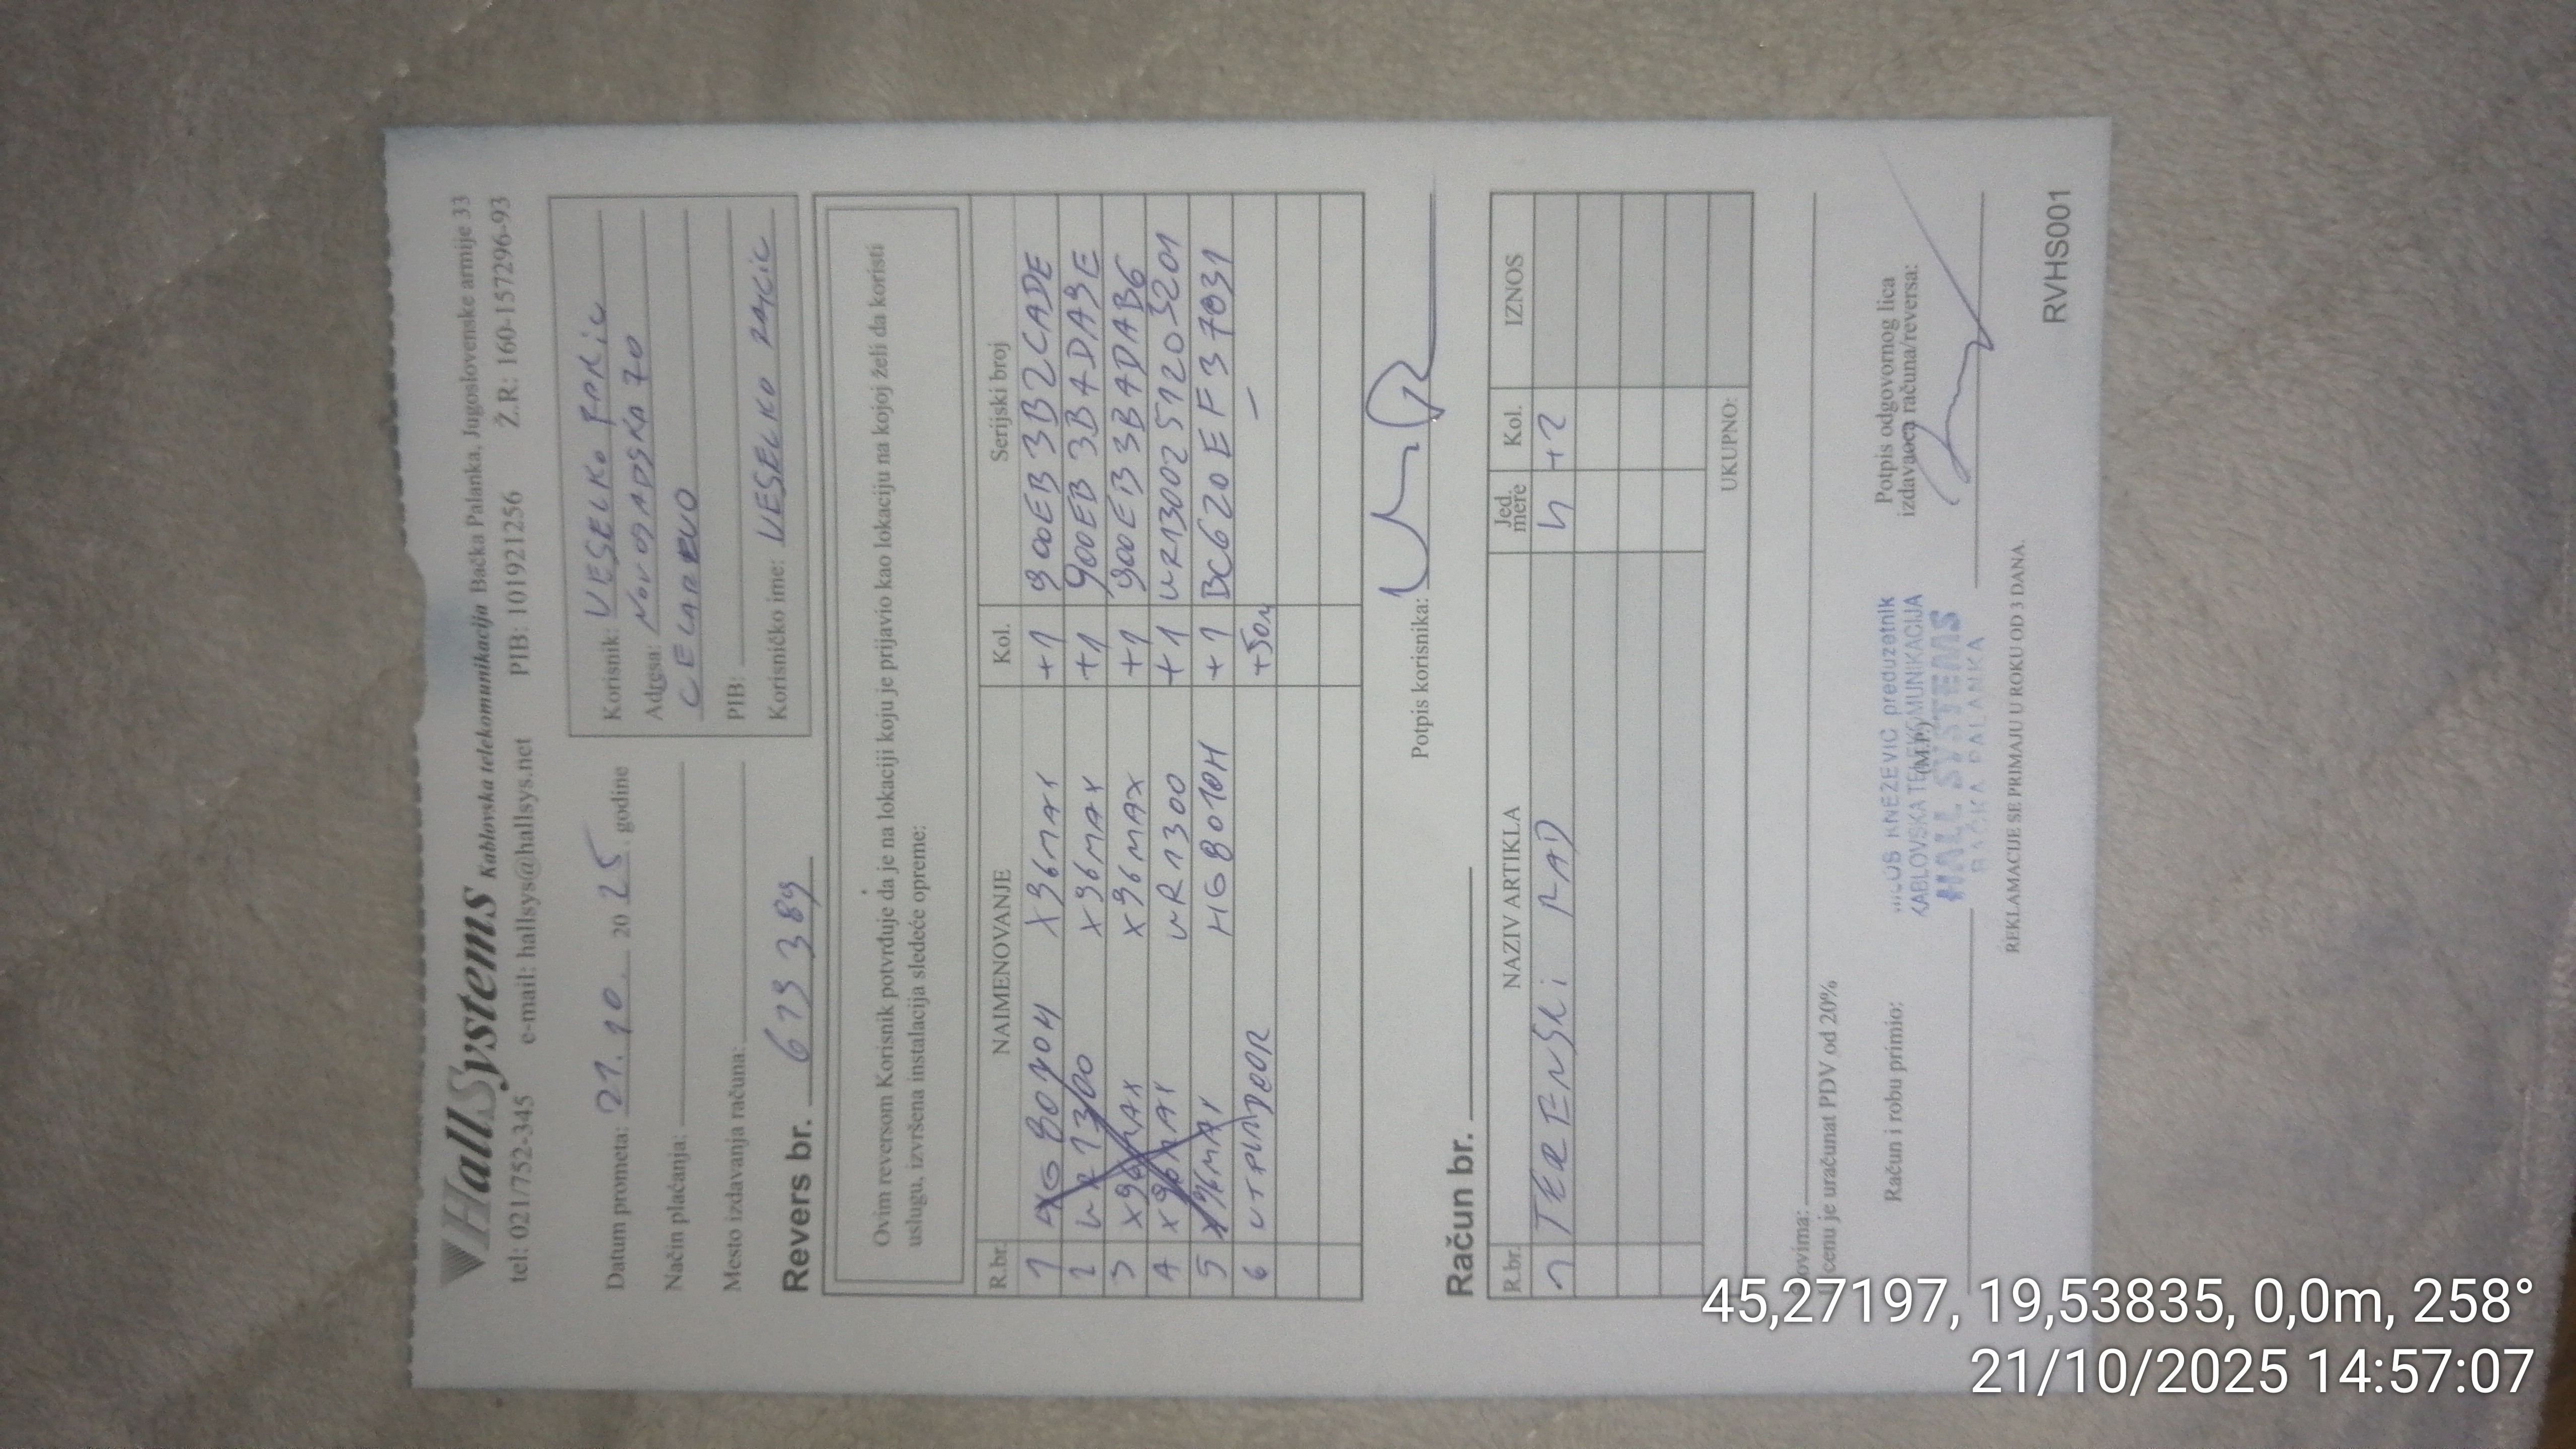 HallSystems Kablovska telekomunikacija Bačka Palanka, Jugoslovenske armije 33
tel: 021/752-345 e-mail: hallsys@hallsys.net PIB: 101921256 Ž.R: 160-157296-93
Datum prometa: 21.10. 2025. godine
Način plaćanja:
Mesto izdavanja računa:
Korisnik: VESELKO
Adresa: NOVOSADSKA 70
CELAREVO
PIB:
Korisničko ime: VESELKO
Revers br. 613389
Ovim reversom Korisnik potvrđuje da je na lokaciji koju je prijavio kao lokaciju na kojoj želi da koristi
uslugu, izvršena instalacija sledeće opreme:
R.br. NAIMENOVANJE Kol. Serijski broj
1 X96MAX +1 900EB3B2CADE
2 WR1300 X96MAX +1 900EB3B4DA9E
3 X96MAX X96MAX +1 900EB3B4DAB6
4 X96MAX WR1300 +1 WR1300251205201
5 X96MAX HG8010H +1 BC620EF37031
6 UTP INDOOR +50m –
Potpis korisnika:
Račun br.
R.br. NAZIV ARTIKLA Jed. mere Kol. IZNOS
1 TERENSKI RAD h +2
UKUPNO:
ovima:
U cenu je uračunat PDV od 20%
Račun i robu primio:
MILOŠ KNEŽEVIĆ preduzetnik
KABLOVSKA TELEKOMUNIKACIJA
(M.P.)
HALL SYSTEMS
BAČKA PALANKA
Potpis odgovornog lica
izdavaoca računa/reversa:
REKLAMACIJE SE PRIMAJU U ROKU OD 3 DANA.
RVHS001
45,27197, 19,53835, 0,0m, 258°
21/10/2025 14:57:07